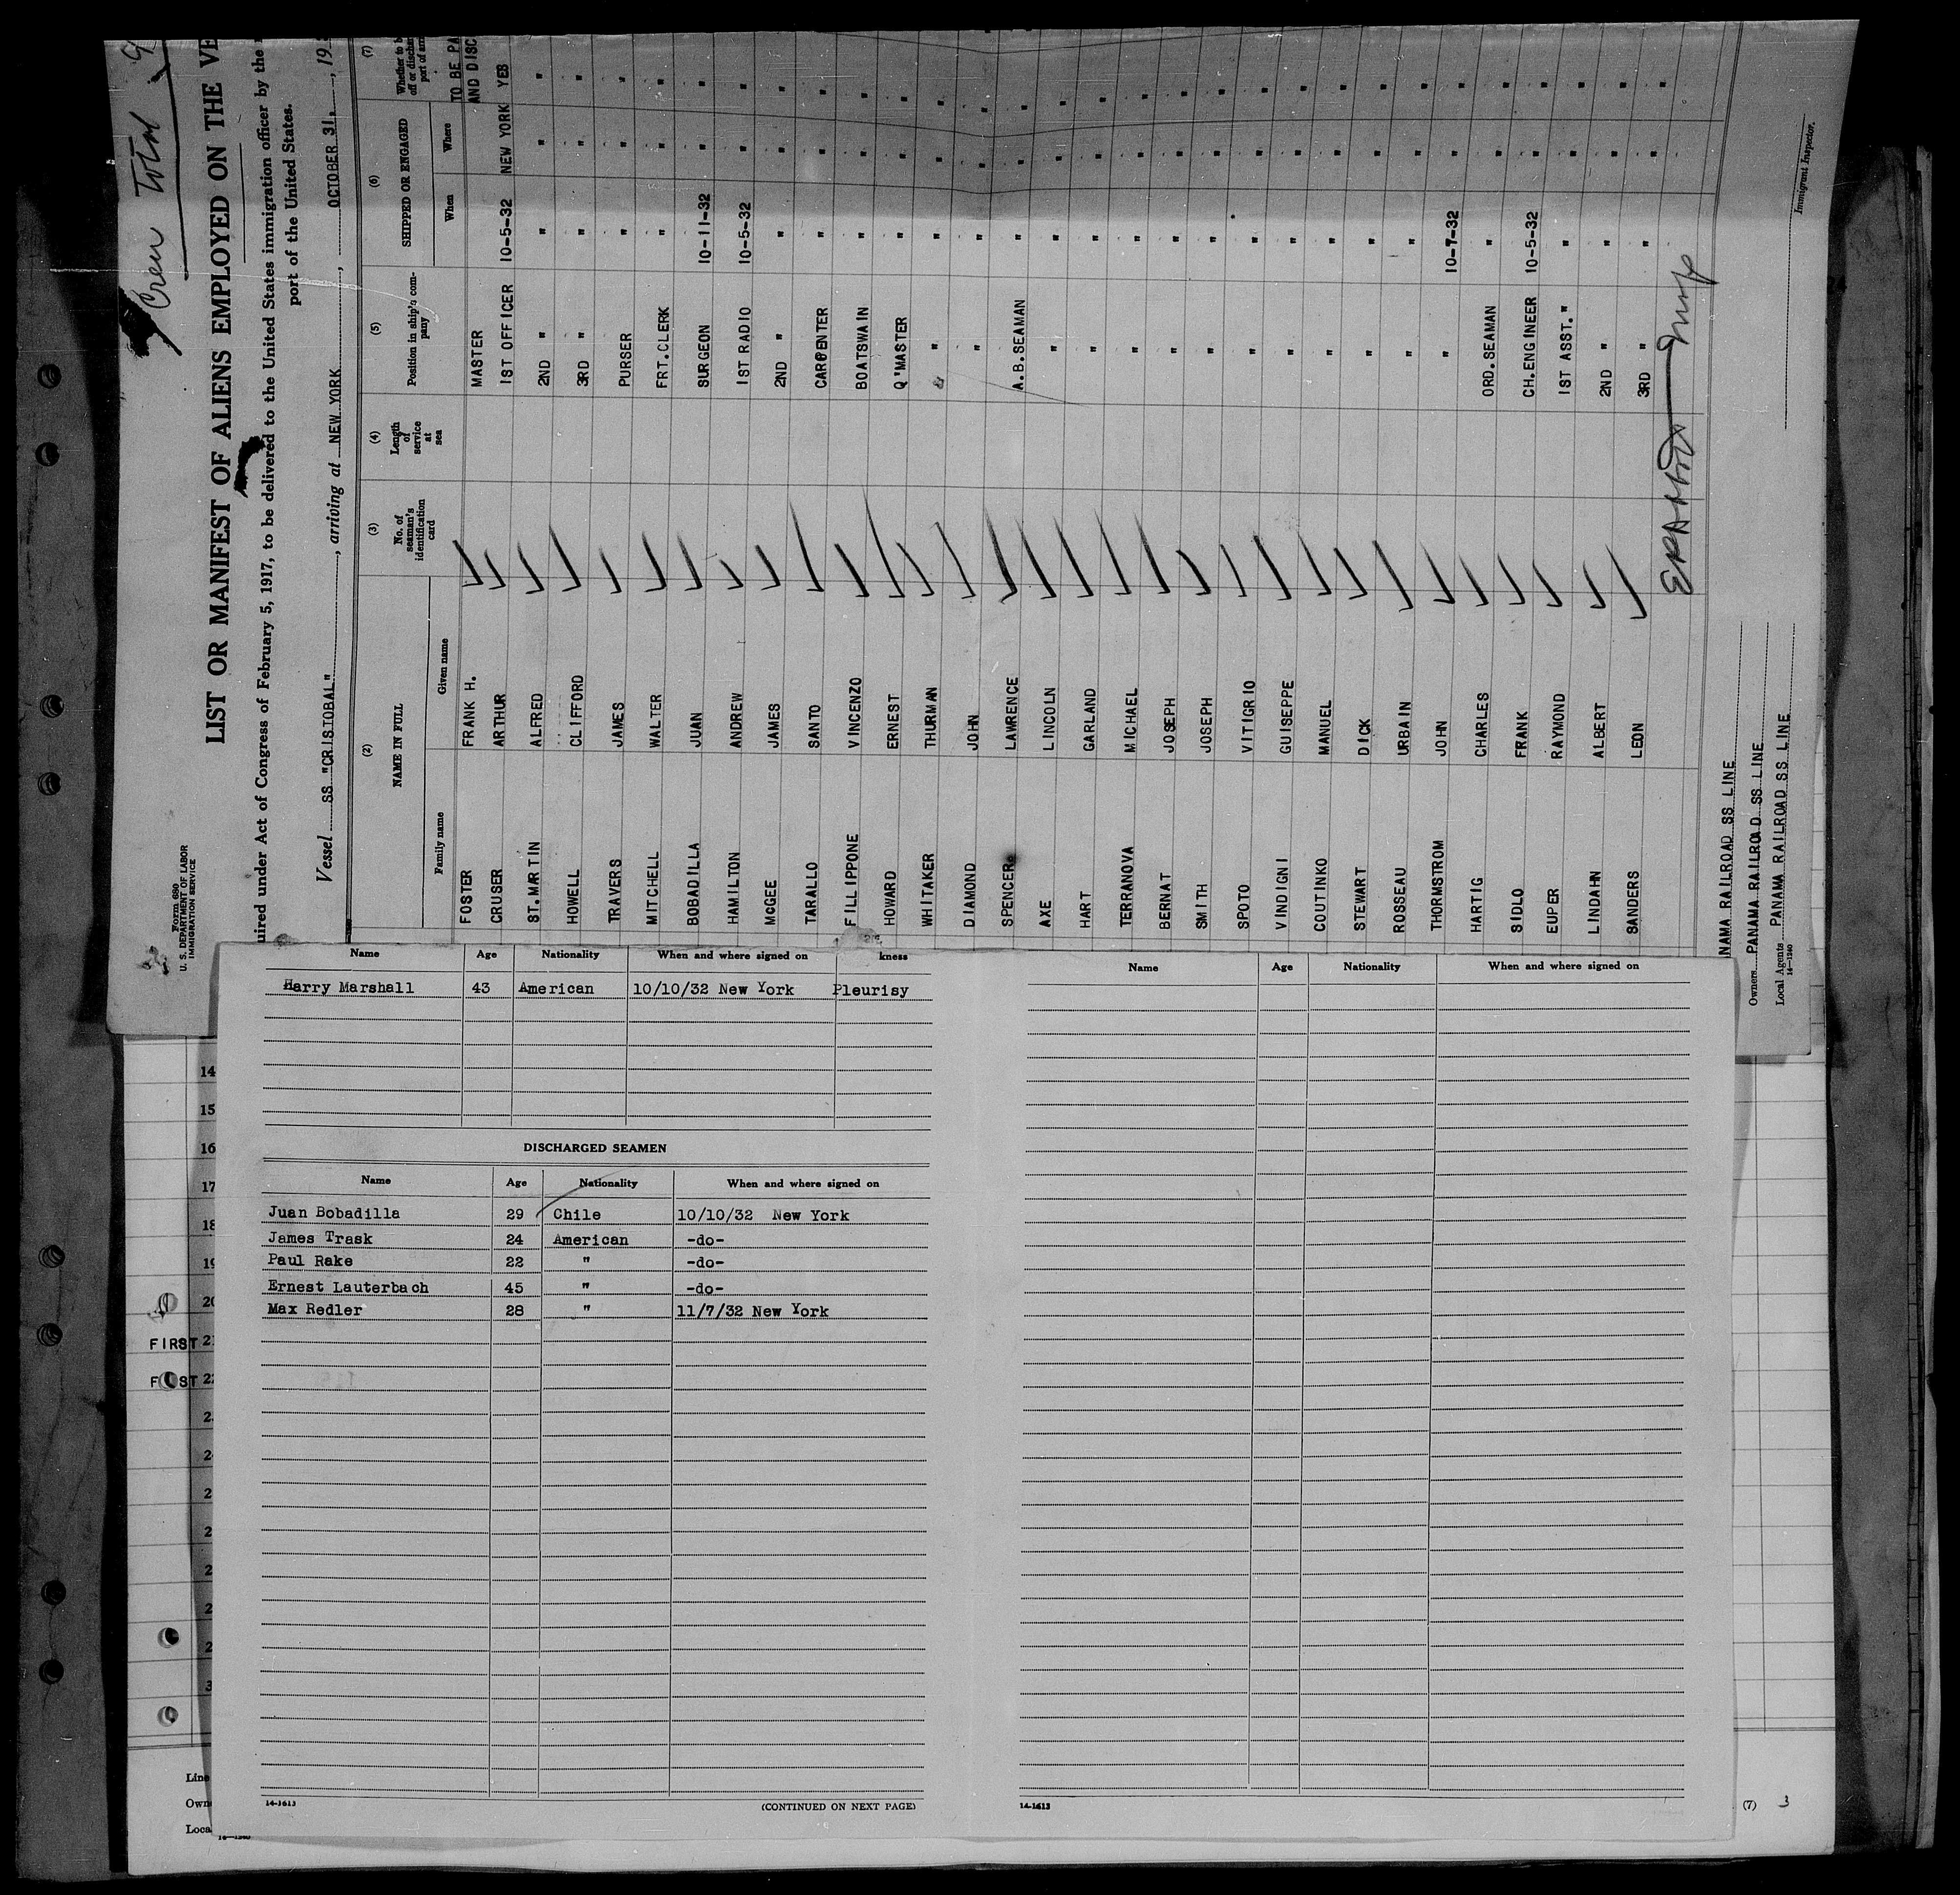 Crew Total
Form 680
U. S. DEPARTMENT OF LABOR
IMMIGRATION SERVICE
LIST OR MANIFEST OF ALIENS EMPLOYED ON THE VE
uired under Act of Congress of February 5, 1917, to be delivered to the United States immigration officer by the
port of the United States.
Vessel SS "CRISTOBAL", arriving at NEW YORK, OCTOBER 31, 19
(2) (3) (4) (5) (6) (7)
NAME IN FULL No. of seaman's identification card Length of service at sea Position in ship's company SHIPPED OR ENGAGED
Family name Given name When Where
TO BE PA
AND DISC
FOSTER FRANK H. MASTER
CRUSER ARTHUR 1ST OFFICER 10-5-32 NEW YORK YES
ST.MARTIN ALFRED 2ND " " " "
HOWELL CLIFFORD 3RD " " " "
TRAVERS JAMES PURSER " " "
MITCHELL WALTER FRT.CLERK " " "
BOBADILLA JUAN SURGEON 10-11-32 " "
HAMILTON ANDREW 1ST RADIO 10-5-32 " "
McGEE JAMES 2ND " " " "
TARALLO SANTO CARPENTER " " "
FILLIPPONE VINCENZO BOATSWAIN " " "
HOWARD ERNEST Q'MASTER " " "
WHITAKER THURMAN " " " "
DIAMOND JOHN " " " "
SPENCER LAWRENCE A.B.SEAMAN " " "
AXE LINCOLN " " " "
HART GARLAND " " " "
TERRANOVA MICHAEL " " " "
BERNAT JOSEPH " " " "
SMITH JOSEPH " " " "
SPOTO VITIGRIO " " " "
VINDIGNI GUISEPPE " " " "
COUTINKO MANUEL " " " "
STEWART DICK " " " "
ROSSEAU URBAIN " " " "
THORMSTROM JOHN " 10-7-32 " "
HARTIG CHARLES ORD.SEAMAN " " "
SIDLO FRANK CH.ENGINEER 10-5-32 " "
EUPER RAYMOND 1ST ASST." " " "
LINDAHN ALBERT 2ND " " " "
SANDERS LEON 3RD " " " "
NAMA RAILROAD SS LINE
Owners PANAMA RAILROAD SS LINE
Local Agents PANAMA RAILROAD SS LINE
14-1240
Immigrant Inspector.
Name Age Nationality When and where signed on kness
Harry Marshall 43 American 10/10/32 New York Pleurisy
DISCHARGED SEAMEN
Name Age Nationality When and where signed on
Juan Bobadilla 29 Chile 10/10/32 New York
James Trask 24 American -do-
Paul Rake 22 " -do-
Ernest Lauterbach 45 " -do-
Max Redler 28 " 11/7/32 New York
14-1613 (CONTINUED ON NEXT PAGE)
Name Age Nationality When and where signed on
14-1613
14
15
16
17
18
19
20
FIRST 21
Line
Own
Loca
(7) 3